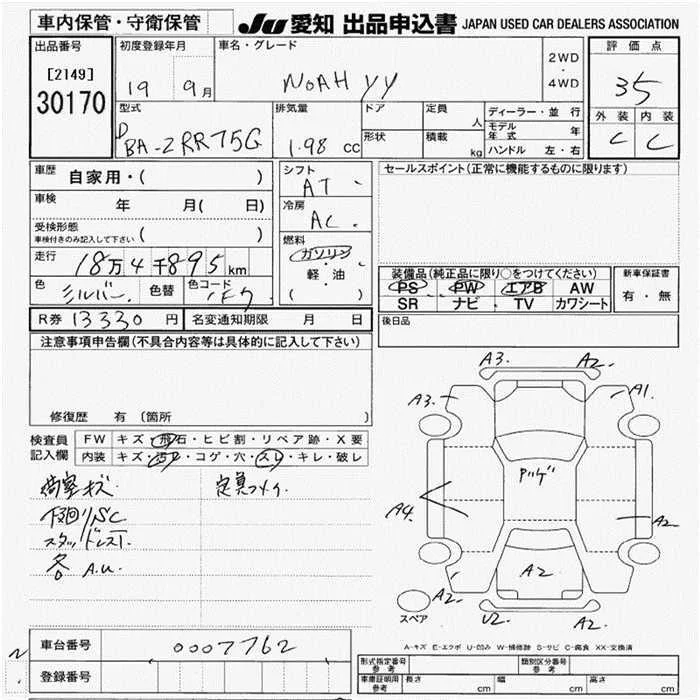 車内保管・守衛保管 JU 愛知 出品申込書 JAPAN USED CAR DEALERS ASSOCIATION
出品番号 初度登録年月 車名・グレード 2WD ・ 4WD 評価点
[2149]
30170 19 9月 NOAH YY 35
型式 排気量 ドア 定員 人 ディーラー・並行 外装 内装
DBA-ZRR75G 1.98 cc 形状 積載 kg モデル年式 年 C C
ハンドル 左・右
車歴 自家用・( ) シフト AT セールスポイント(正常に機能するものに限ります)
車検 年 月( 日) 冷房 AC
受検形態 車検付きのみ記入して下さい ( ) 燃料
走行 18万4千895km ガソリン
軽・油
( )
装備品(純正品に限り○をつけてください) 新車保証書
色 シルバー 色替 色コード 1F7 PS PW エアB AW 有・無
SR ナビ TV カワシート
R券 13330円 名変通知期限 月 日 後日品
注意事項申告欄(不具合内容等は具体的に記入して下さい)
修復歴 有 (箇所 )
検査員記入欄 FW キズ・飛石・ヒビ割・リペア跡・X要
内装 キズ・汚レ・コゲ・穴・スレ・キレ・破レ
荷室キズ
下回りSC
スタッドレスT
各A.U.
A3. A2.
A3. A1.
A4. A2
A2
A2. U2. A2.
スペア
A-キズ E-エクボ U-凹み W-補修跡 S-サビ C-腐食 XX-交換済
車台番号 0007762
登録番号
型式指定番号 参考 類別区分番号 参考
車庫証明用 参考 長さ cm 幅 cm 高さ cm